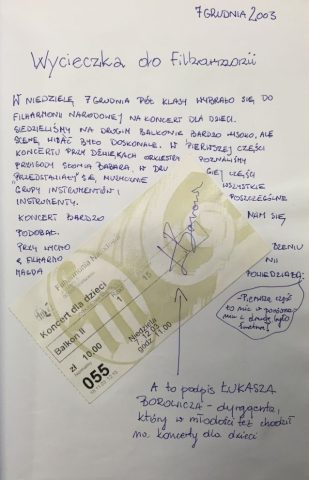 7 GRUDNIA 2003
Wycieczka do Filharmonii
W NIEDZIELĘ 7 GRUDNIA PÓŁ KLASY WYBRAŁO SIĘ DO
FILHARMONII NARODOWEJ NA KONCERT DLA DZIECI.
SIEDZIELIŚMY NA DRUGIM BALKONIE BARDZO WYSOKO, ALE
SCENĘ WIDAĆ BYŁO DOSKONALE. W PIERWSZEJ CZĘŚCI
KONCERTU PRZY DŹWIĘKACH ORKIESTRY POZNALIŚMY
PRZYGODY SŁONIA BABARA. W DRU GIEJ CZĘŚCI
"PRZEDSTAWIAŁY" SIĘ NAM WSZYSTKIE
GRUPY INSTRUMENTÓW I POSZCZEGÓLNE
INSTRUMENTY.
KONCERT BARDZO NAM SIĘ
PODOBAŁ.
PRZY WYCHO DZENIU
Z FILHARMO NII
MAGDA POWIEDZIAŁA:
- Pierwsza część
to nic w porówna
niu z drugą było
świetnie!
Filharmonia Narodowa
Koncert dla dzieci
Balkon II
1
15
zł 10,00
Niedziela
godz. 11.00
055
A to podpis ŁUKASZA
BOROWICZA - dyrygenta,
który w młodości też chodził
na koncerty dla dzieci